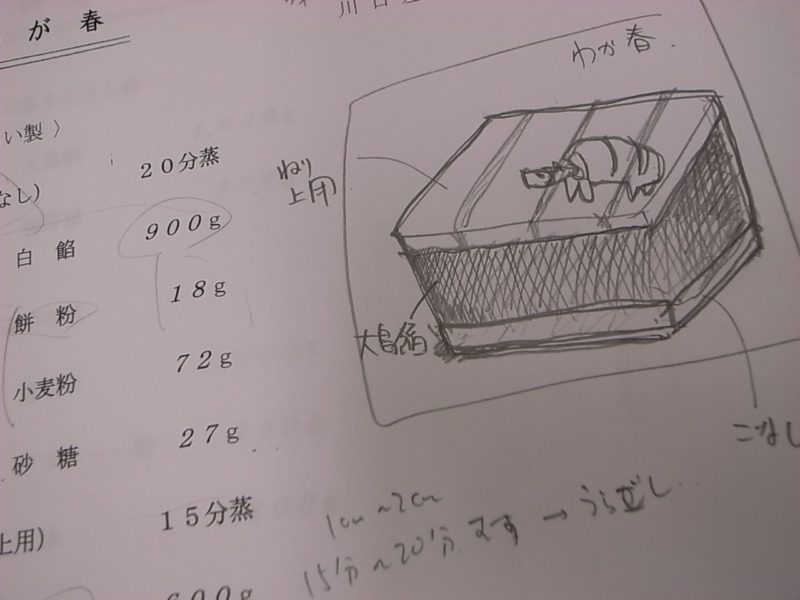 が春
い製〉
なし)
20分蒸
白餡 900g
餅粉 18g
小麦粉 72g
砂糖 27g
上用) 15分蒸
600g
わが春.
ねり
上用
大島餡
こなし
1cm～2cm
15分～20分 むす → うらごし..